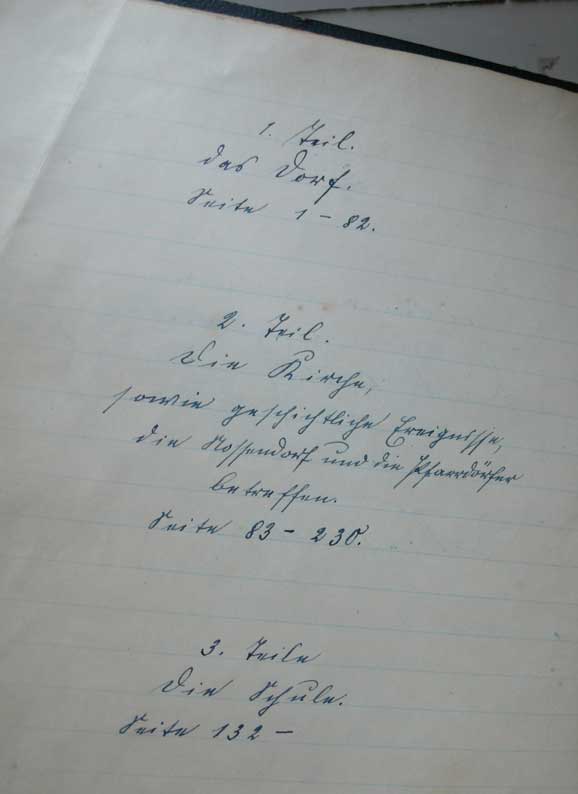 1. Teil.
das Dorf.
Seite 1 – 82.
2. Teil.
Die Kirche,
sowie geschichtliche Ereignisse,
die Nossendorf und die Pfarrdörfer
betreffen.
Seite 83 – 230.
3. Teile
Die Schule.
Seite 132 –